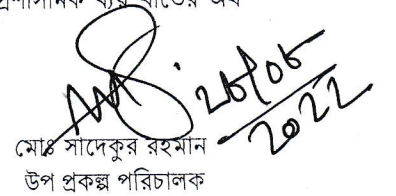 প্রশাসনিক ব্যয় খাতের অর্থ
২৮/০৮
২০২২
মোঃ সাদেকুর রহমান
উপ প্রকল্প পরিচালক